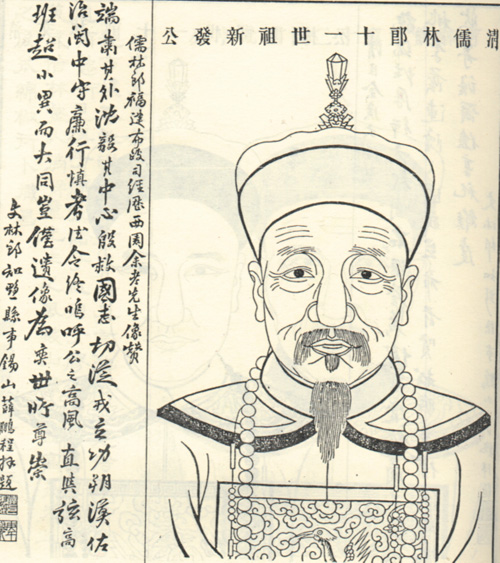 清儒林郎十一世祖新發公
儒林郎福建布政司經歷西園余老先生像贊
端肅其外沈毅其中心殷救國志切從戎立功朔漠佐
治閩中守廉行慎考令終嗚呼公之高風直與弦高
班超小異而大同豈僅遺像為奕世所尊崇
文林郎知黟縣事錫山薛鵬程拜題